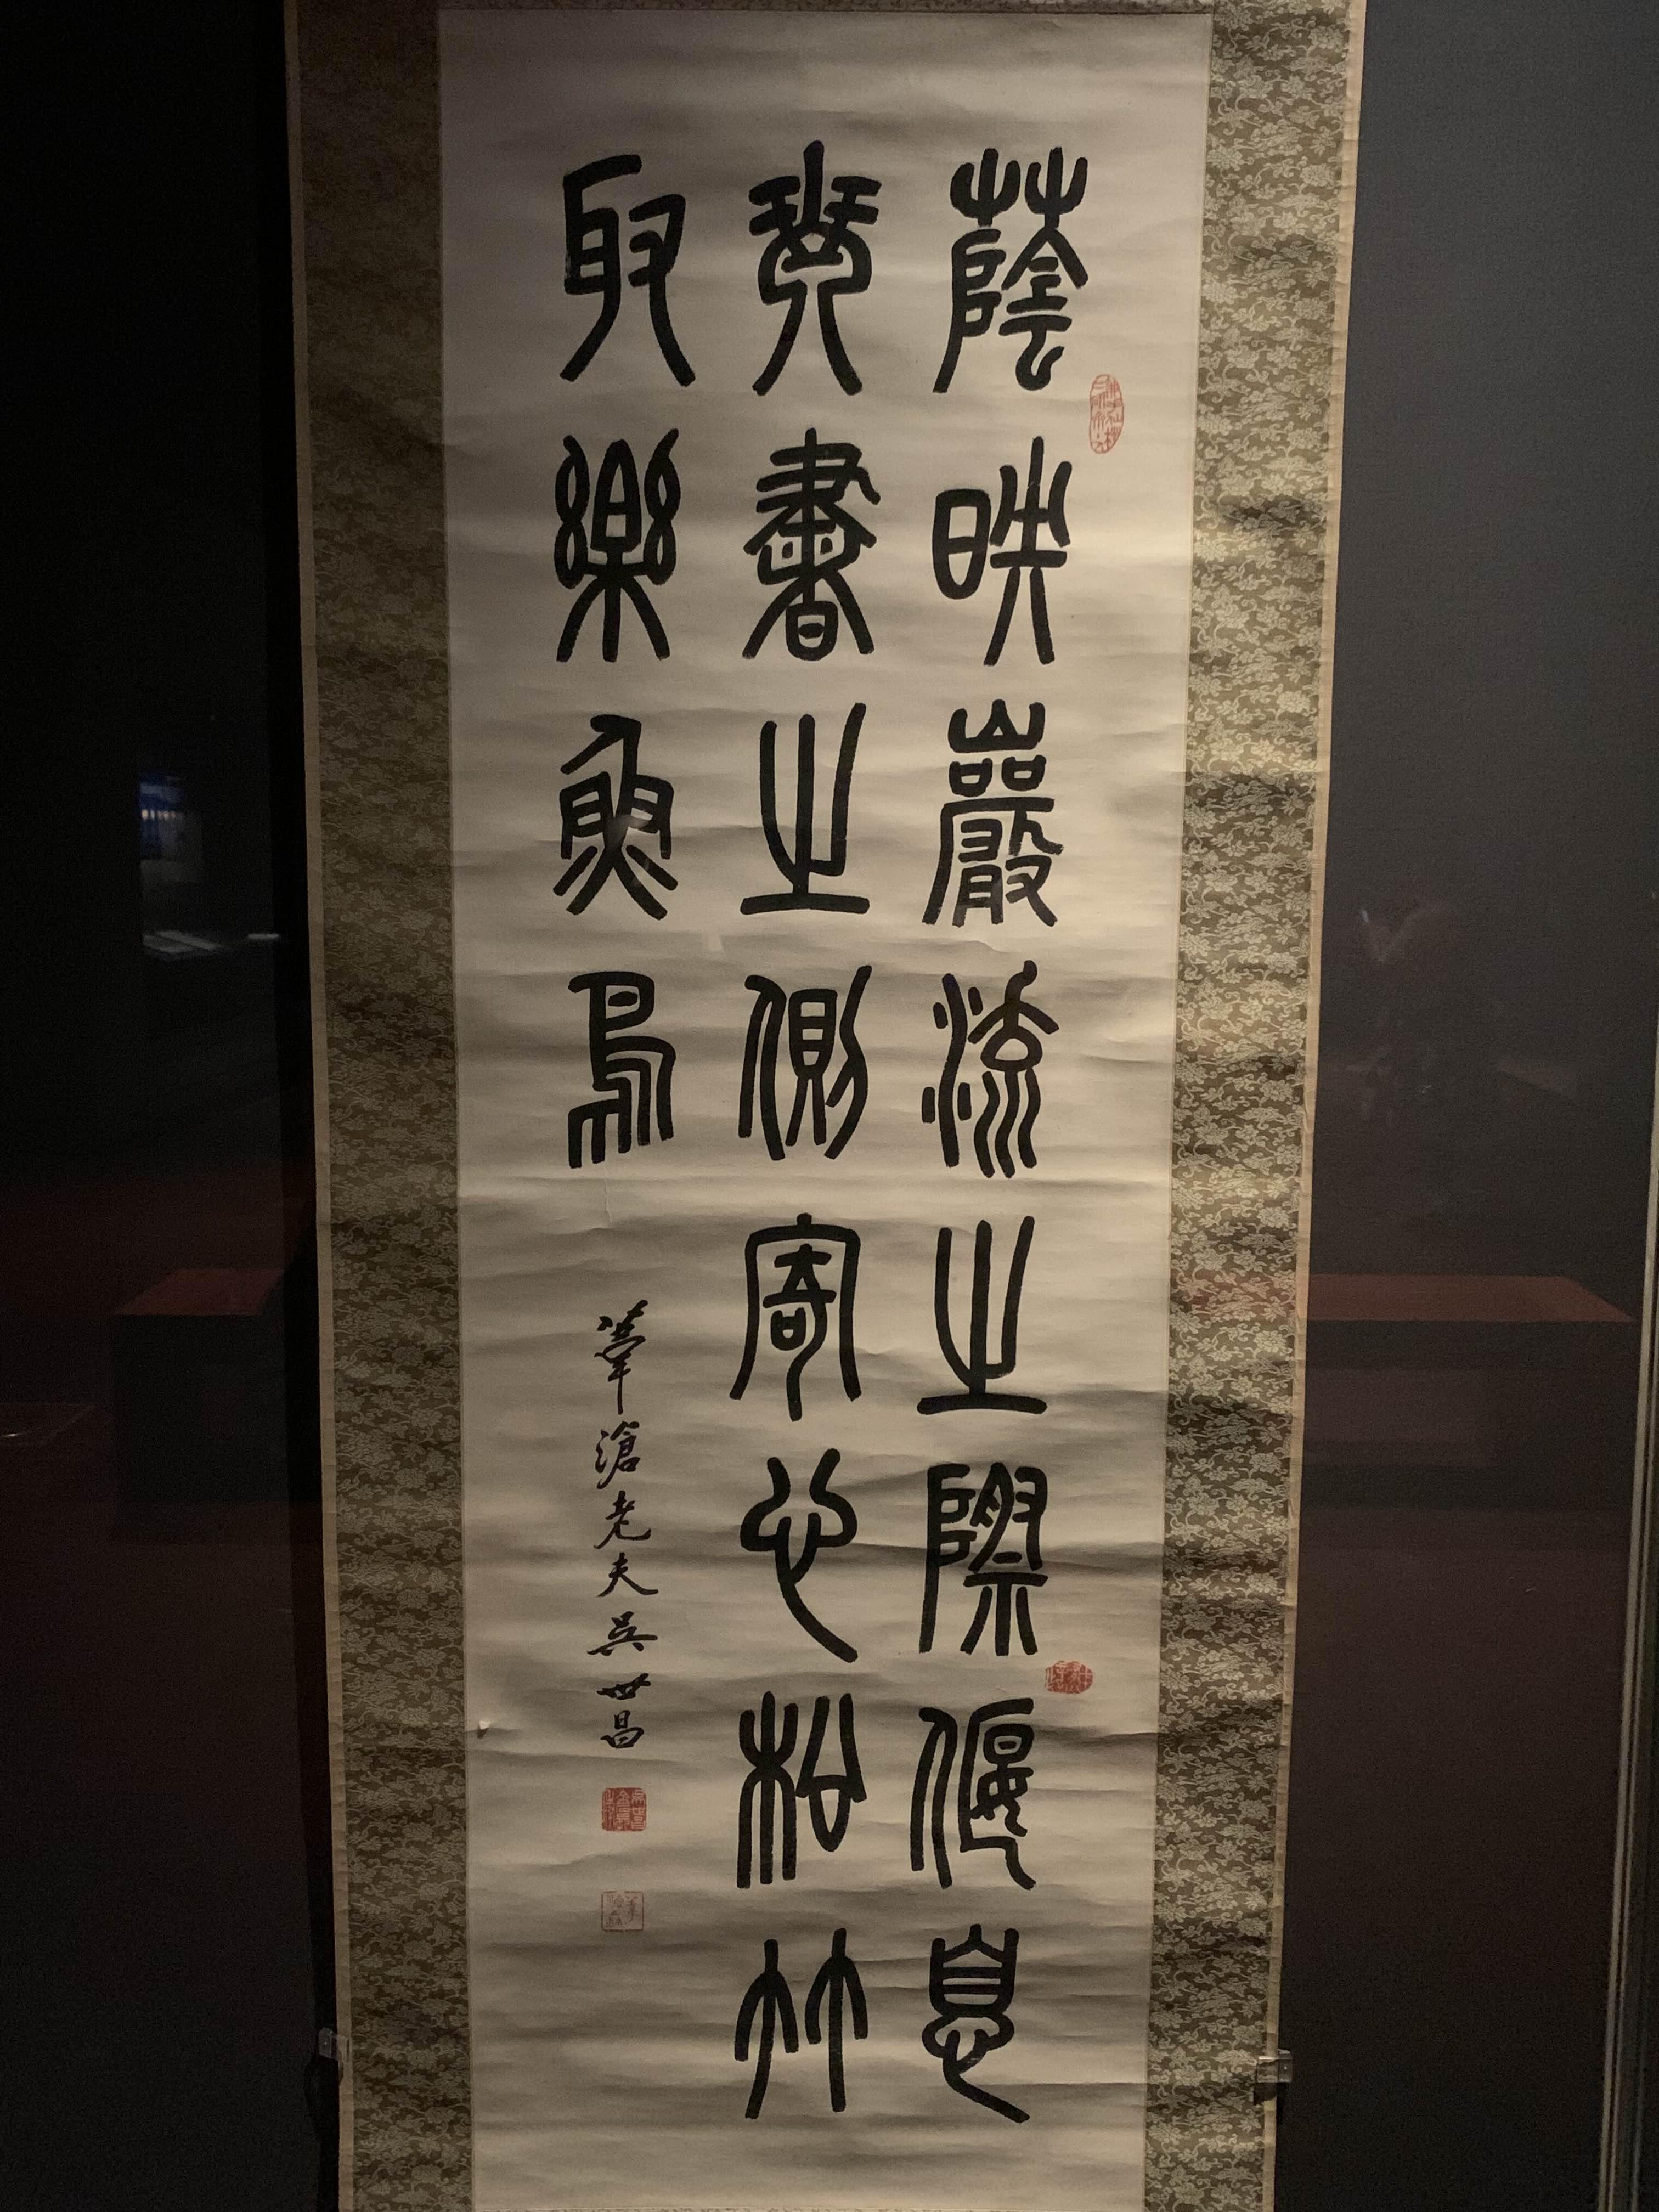 蔭映巖流之際偃息
琴書之側寄心松竹
取樂魚鳥
篳滄老夫吳世昌